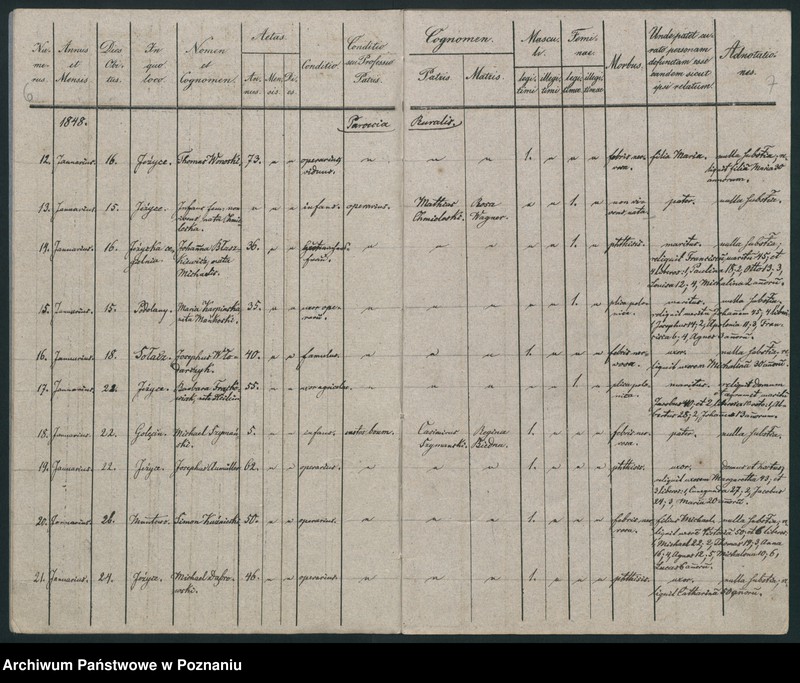 Nu-me-rus. Annus et Mensis. Dies Obi-tus. In quo loco. Nomen et Cognomen. Aetas. An-nus. Men-sis. Di-es. Conditio. Conditio seu Professio Patris.
Cognomen. Patris. Matris. Mascu-li. legi-timi illegi-timi Femi-nae. legi-timae illegi-timae Morbus. Unde patet cu-rato personam defunctam esse eandem sicut ipse relatum. Adnotatio-nes.
6 7
1848. Paroecia Ruralis.
12. Januarius. 16. Jeżyce. Thomas 73. operarius, viduus. 1. febris ner-vosa. filia Maria. nulla subostia, re-liquit filia Maria 30 annorum.
13. Januarius. 15. Jeżyce. Infans fem: non vivens nata Chmie-loska. infans. operarius. Mathias Chmieloski. Rosa Wagner. 1. non viv-ens nata. pater. nulla subostia.
14. Januarius. 16. Johanna Blasz-kiewicz, nata Michaels. 36. 1. phthisis. maritus. nulla subostia,
reliquit Franciscu maritu 45, et 4 liberos: 1, Paulina 18, 2, Otto 13, 3, Louisa 12, 4, Michalina 2 anoru.
15. Januarius. 15. Podolany. Maria Karpinski, nata Mańkoski. 35. uxor ope-rarii. 1. plica polo-nica. maritus. nulla subostia,
reliquit maritu Johannem 45, 4 liberos (Josephus 14, 2, Apolonia 11, 3, Fran-cisca 6, 4, Agnes 3 anoru.
16. Januarius. 18. Sołacz. Josephus Wło-darczyk. 40. famulus. 1. febris ner-vosa. uxor. nulla subostia, re-liquit uxorem Michalina 30 anoru.
17. Januarius. 21. Jeżyce. Barbara 55. uxor agricolae. 1. plica polo-nica. maritus. reliquit domum
et agrum et maritu Jacobus et 2 liberos 25, 2, Johann 13 anorum.
18. Januarius. 22. Golęcin. Michael Szyman-ski. 5. infans. custos boum. Casimirus Szymanski. Regina Biedna. 1. febris ner-vosa. pater. nulla subostia.
19. Januarius. 22. Jeżyce. Josephus 62. operarius. 1. phthisis. uxor. domus et hortus,
reliquit uxorem Margaretha 43, et 3 liberos: 1, Cunegunda 27, 2, Jacobus 24, 3, Maria 20 anoru.
20. Januarius. 21. Simon 50. operarius. 1. febris ner-vosa. filius Michael. nulla subostia, re-
liquit uxore Victoria 50, et 6 liberos: Michael 22, 2, Thomas 19, 3, Anna 16, 4, Agnes 12, 5, Michalina 10, 6, Lucas 6 anoru.
21. Januarius. 24. Jeżyce. Michael Dąbro-wski. 46. operarius. 1. phthisis. uxor. nulla subostia, re-liquit Catharina 50 anoru.
Archiwum Państwowe w Poznaniu